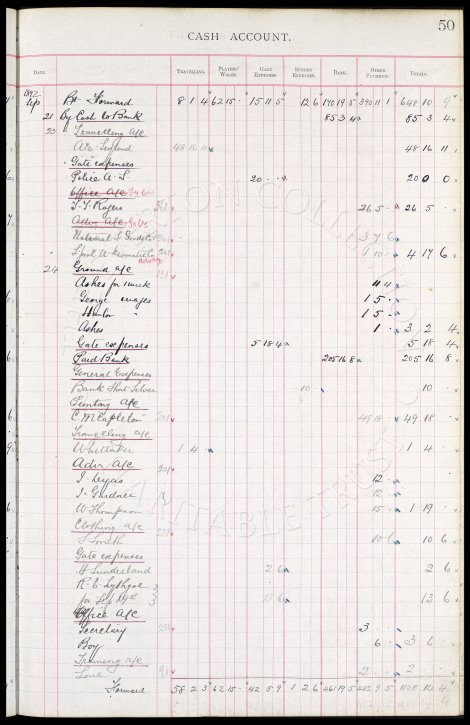 50
CASH ACCOUNT.
DATE. TRAVELLING. PLAYERS' WAGES. GATE EXPENSES. SUNDRY EXPENSES. BANK. OTHER PAYMENTS. TOTALS.
1892
Sep Bt Forward 8 1 4 62 15 - 15 11 5 12 6 190 19 5 390 11 1 648 10 9
21 By Cash to Bank 85 3 4 85 3 4
23 " Travelling a/c
48 16 11 48 16 11
" Gate expenses
Police A. S. 20 - - 20 0 0
Office a/c
Rogers 26 5 - 26 5 -
Advg. a/c
3 7 6
1 10 - 4 17 6
24 Ground a/c
Ashes for 1 week 11 4
George wages 1 5 -
Hanlon " 1 5 -
Ashes 1 - 3 2 4
Gate expenses 5 18 4 5 18 4
Paid Bank 205 16 8 205 16 8
General Expenses
Bank Short Silver 10 - 10 -
Printing a/c
201 49 18 - 49 18 -
Travelling a/c
Whittaker 1 4 - 1 4 -
Advg. a/c
12 -
J. Gardner 12 -
W Thompson 15 - 1 19 -
Clothing a/c
J Smith 10 6 10 6
Gate expenses
H Sunderland 2 6 2 6
R. E. Lythgoe
for Sep 1892 13 6 13 6
Office a/c
Secretary 3 -
Boy 6 - 3 6 -
Training a/c
Love 91 2 - 2 -
Forward 58 2 3 62 15 - 42 5 9 1 2 6